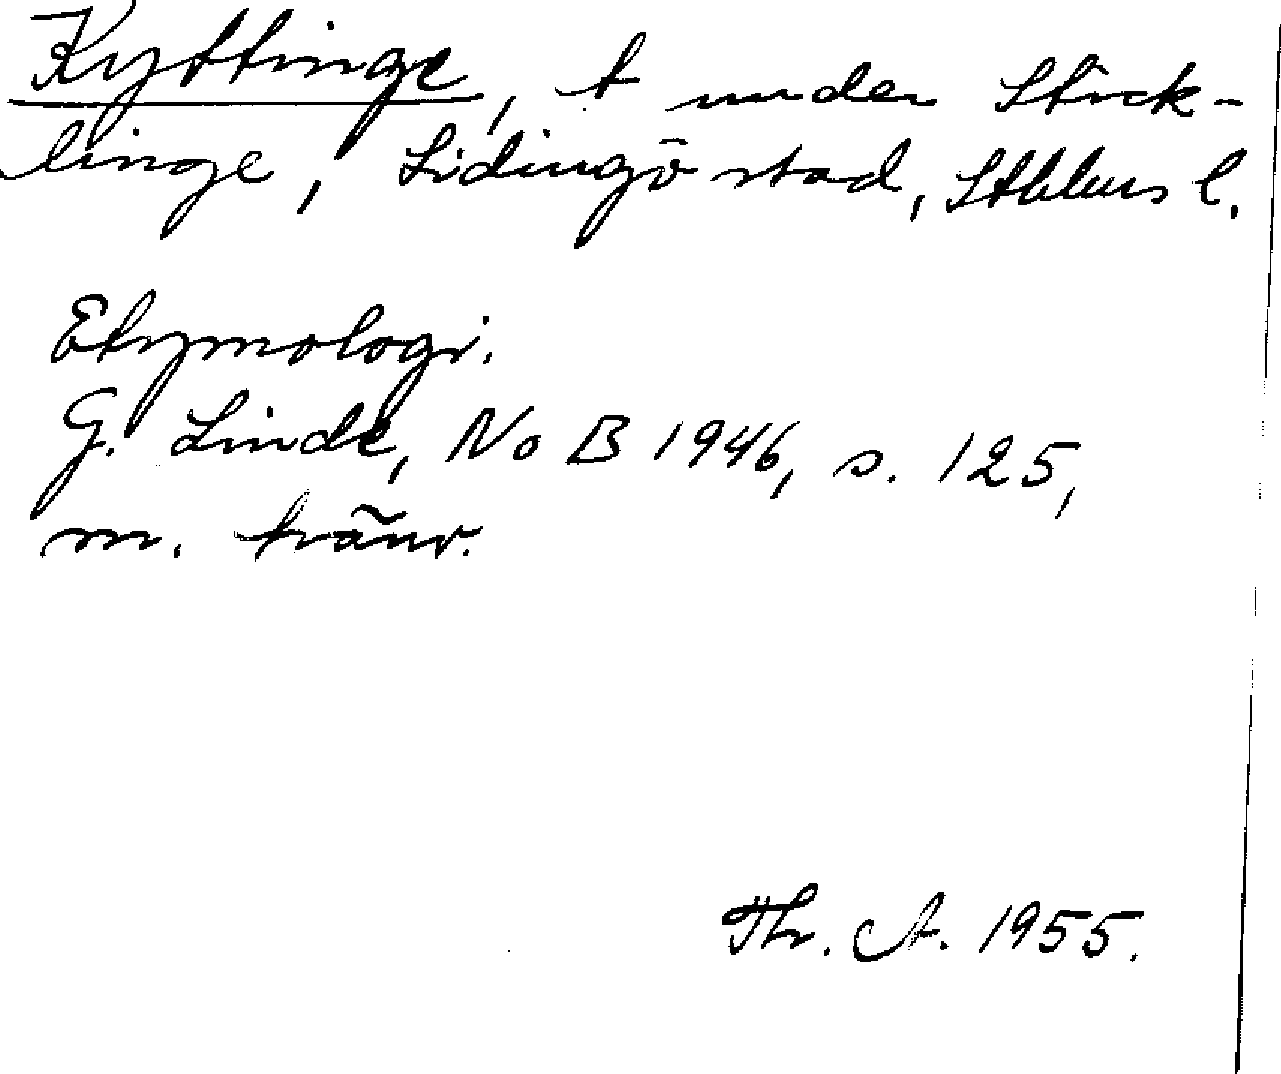 Kyttinge, t under Stick-
linge, Lidingö stad, Sthlms l.
Etymologi.
G. Linde, No B 1946, s. 125,
m. hänv.
Th. A. 1955.